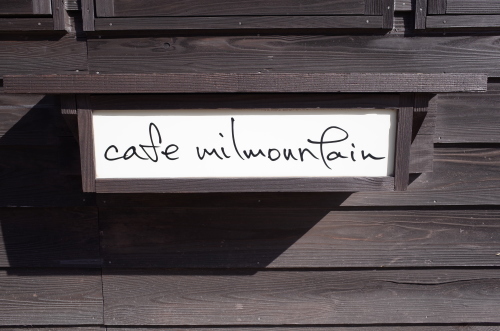 cafe milmountain